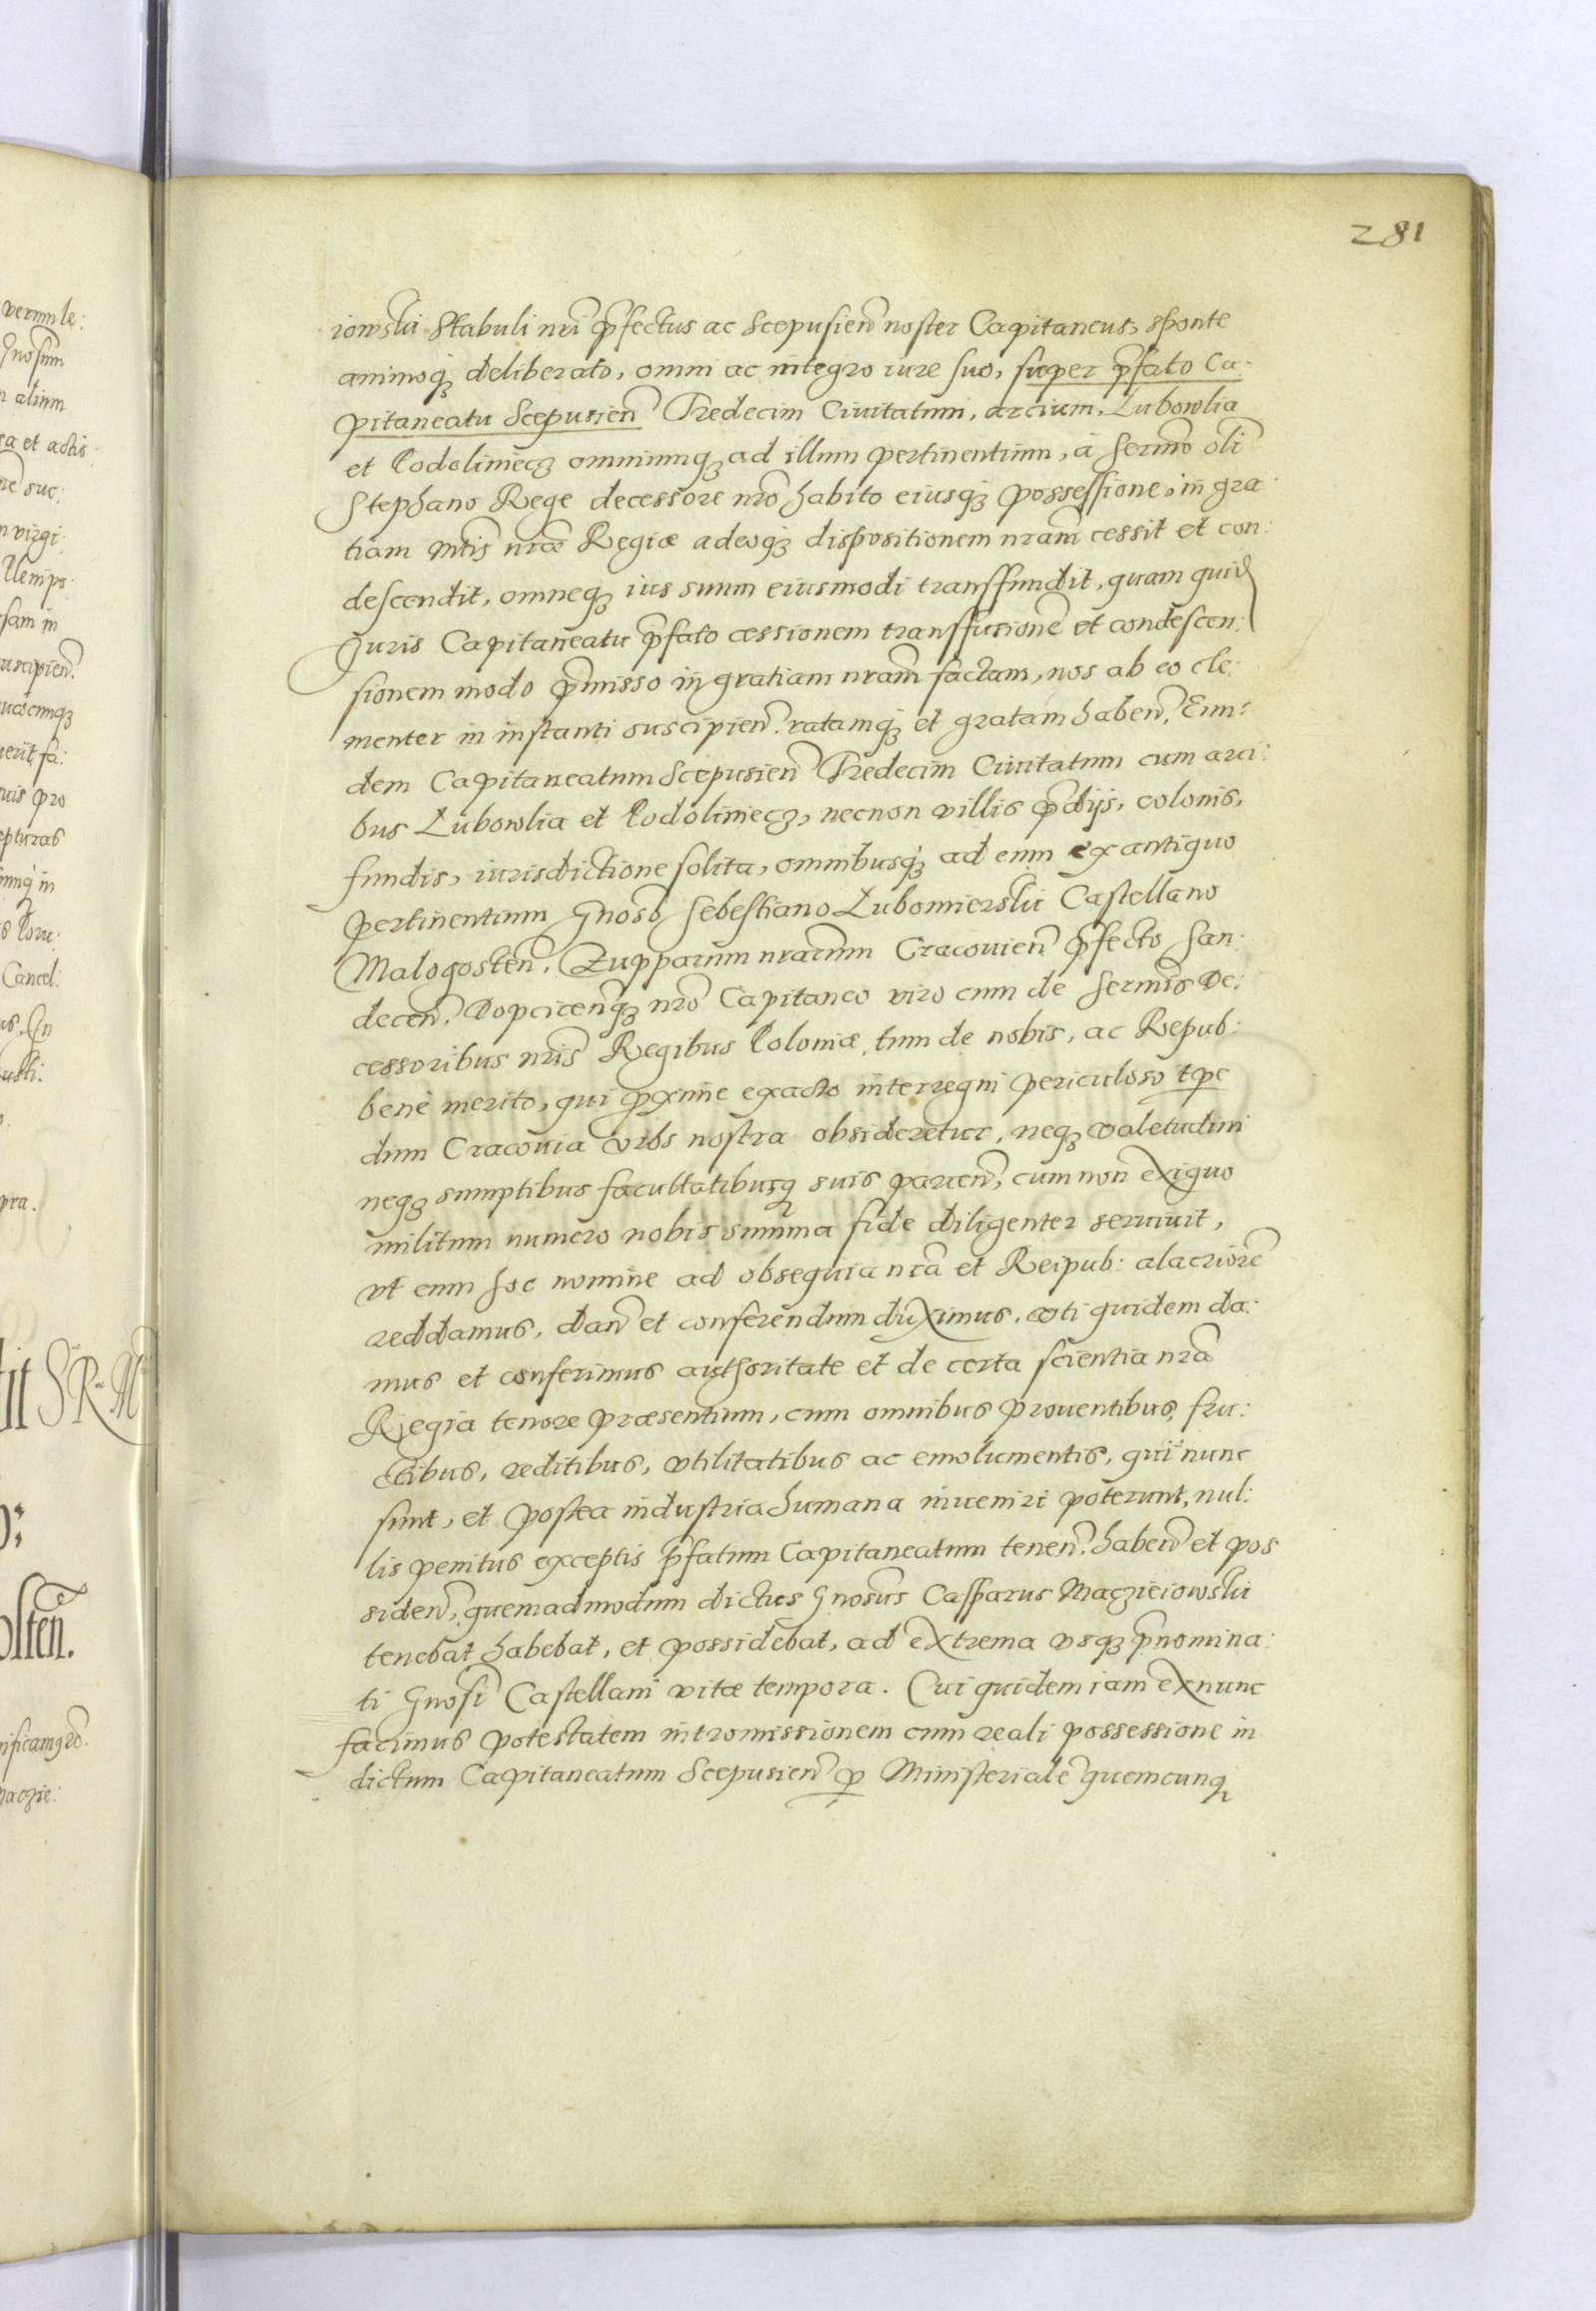 281
iowski Stabuli nrĩ p̃fectus ac Scepusieñ noster Capitaneus, sponte
animoq3 deliberato, omni ac integro iure suo, super p̃fato Ca:
pitaneatu Scepusieñ Tredecim Ciuitatum, arcium, Lubowlia
et Podoliniecz omniumq3 ad illum pertinentium, à Sermõ olĩ
Stephano Rege decessore nrõ habito eiusq3 possessione, in gra
tiam Mtĩs nrẽ Regiæ adeoq3 dispositionem nram̃ cessit et con:
descendit, omneq3 ius suum eiusmodi transfundit, quam quid̃
Juris Capitaneatu p̃fato cessionem transfusionẽ et condescen:
sionem modo p̃misso in gratiam nram̃ factam, nos ab eo cle:
menter in instanti suscipieñ. ratamq3 et gratam habeñ, Eun:
dem Capitaneatum Scepusieñ Tredecim Ciuitatum cum arci:
bus Lubowlia et Podoliniecz, necnon villis p̃dijs, colonis,
fundis, iurisdictione solita, omnibusq3 ad eum ex antiquo
pertinentium Gnosõ Sebestiano Lubomierski Castellano
Malogosteñ, Zupparum nrarũm Cracouieñ p̃fecto San:
deceñ. Dopcicenq̃3 nrõ Capitaneo viro cum de Sermĩs De:
cessoribus nrĩs Regibus Poloniæ, tum de nobis, ac Repub:
bene merito, qui p̃xime exacto interregni periculoso tp̃e
dum Cracouia vrbs nostra obsideretur, neq3 valetudini
neq3 sumptibus facultatibusq3 suis parceñ, cum non exiguo
militum numero nobis summa fide diligenter seruiuit,
vt eum hoc nomine ad obsequia nrã et Reipub: alacriorẽ
reddamus, dañ et conferendum duximus, vti quidem da:
mus et conferimus authoritate et de certa scientia nrã
Regia tenore præsentium, cum omnibus prouentibus, fru:
ctibus, reditibus, vtilitatibus ac emolumentis, qui nunc
sunt, et postea industria humana inueniri poterunt, nul:
lis penitus exceptis p̃fatum Capitaneatum teneñ. habeñ et pos
sideñ, quemadmodum dictus Gnosũs Casparus Maczieiowski
tenebat habebat, et possidebat, ad extrema vsq3 p̃nomina:
ti Gnosĩ Castellani vitæ tempora. Cui quidem iam ex nunc
facimus potestatem intromissionem cum reali possessione in
dictum Capitaneatum Scepusieñ p̱ Ministerialẽ quemcunq3